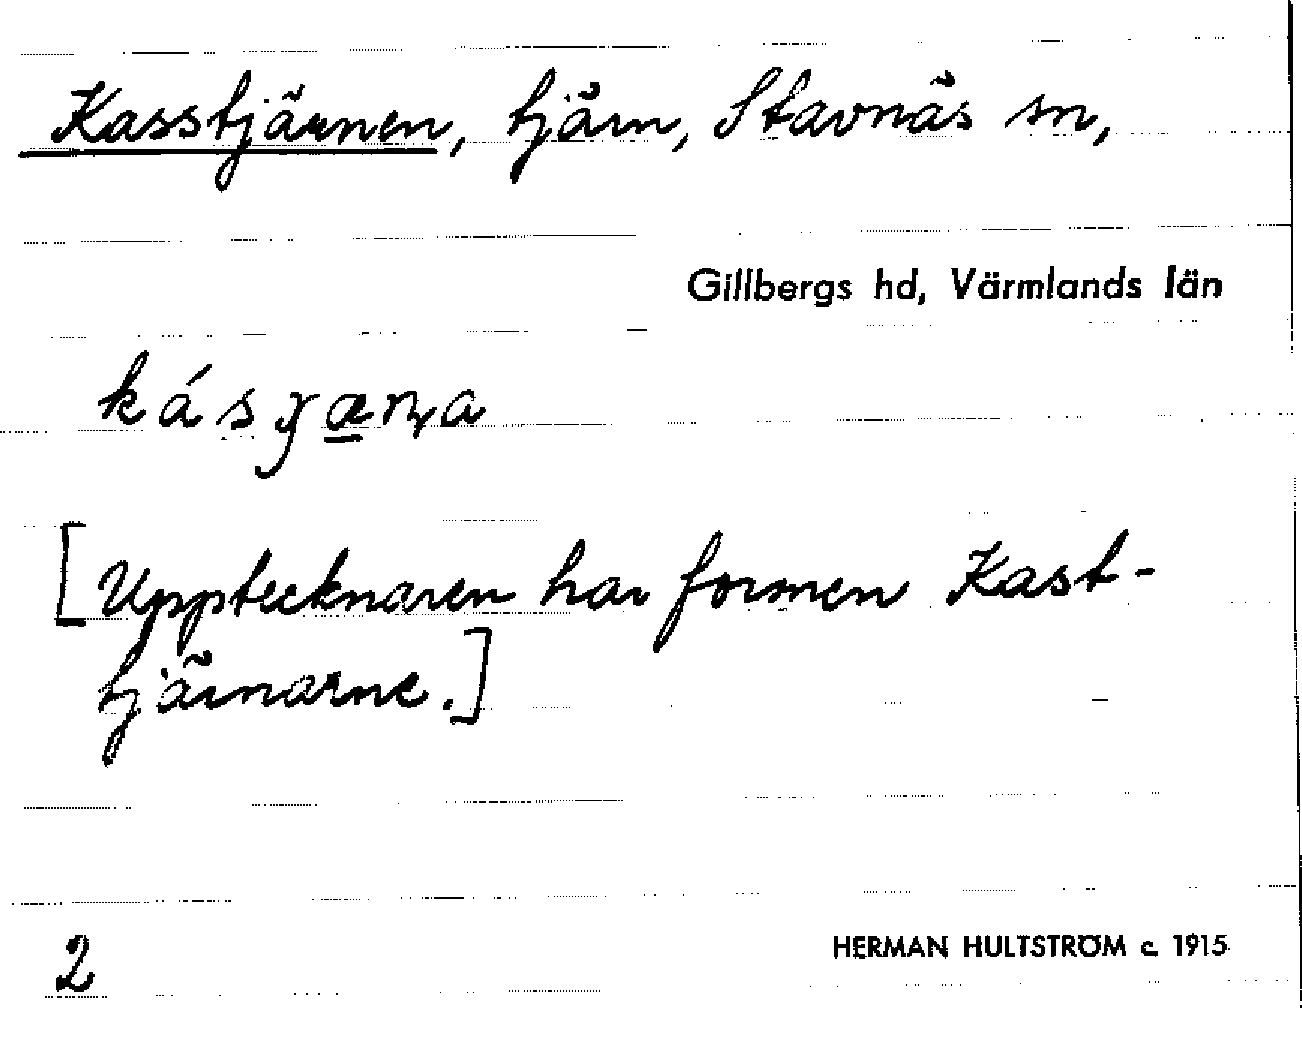 Kasstjärnen, tjärn, Stavnäs sn,
Gillbergs hd, Värmlands län
[Upptecknaren har formen Kast-
tjärnarne.]
2
HERMAN HULTSTRÖM c. 1915